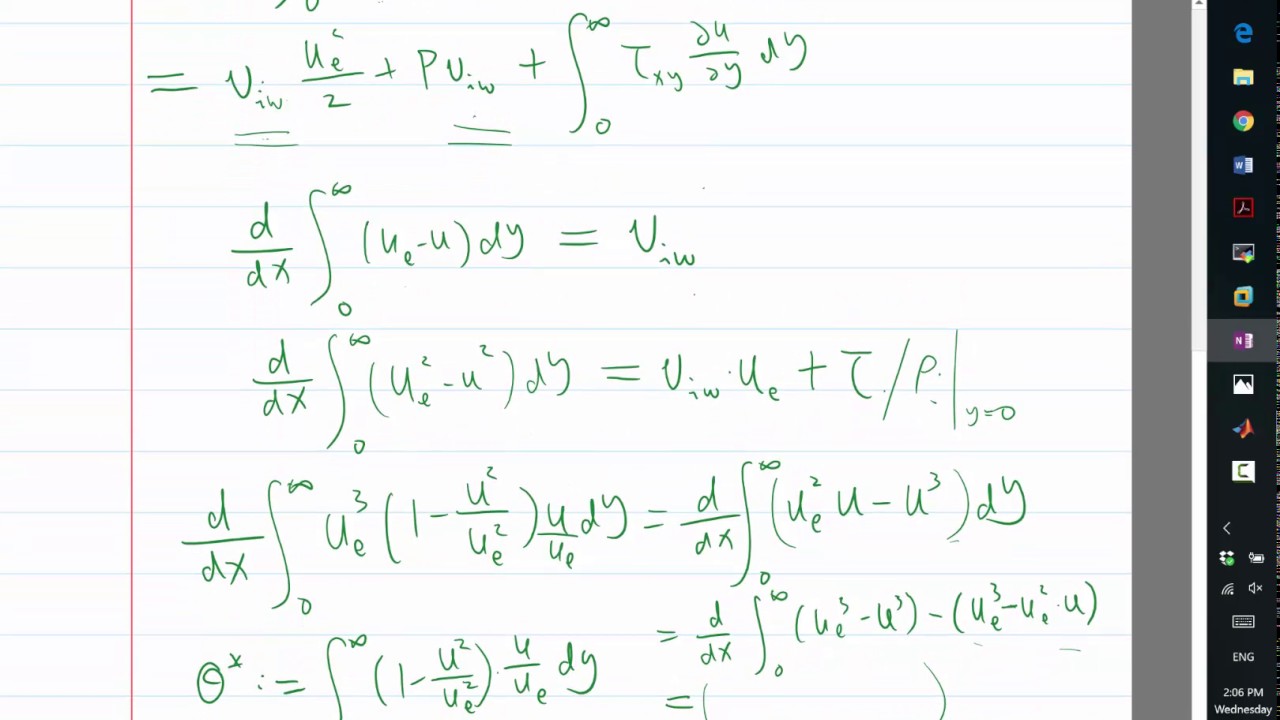 = v_{iw} u_e^2/2 + P v_{iw} + ∫_0^∞ τ_{xy} ∂u/∂y dy
d/dx ∫_0^∞ (u_e - u) dy = v_{iw}
d/dx ∫_0^∞ (u_e^2 - u^2) dy = v_{iw} · u_e + τ/ρ |_{y=0}
d/dx ∫_0^∞ u_e^3 (1 - u^2/u_e^2) u/u_e dy = d/dx ∫_0^∞ (u_e^2 u - u^3) dy
= d/dx ∫_0^∞ (u_e^3 - u^3) - (u_e^3 - u_e^2 · u)
θ^* := ∫^∞ (1 - u^2/u_e^2) · u/u_e dy
= ( )
ENG
2:06 PM
Wednesday